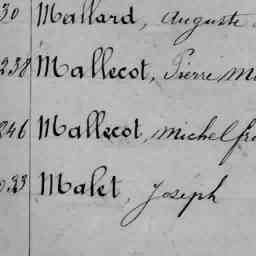 30 Mallard, Auguste
238 Mallecot, Pierre M
246 Mallecot, Michel fr
033 Malet, Joseph